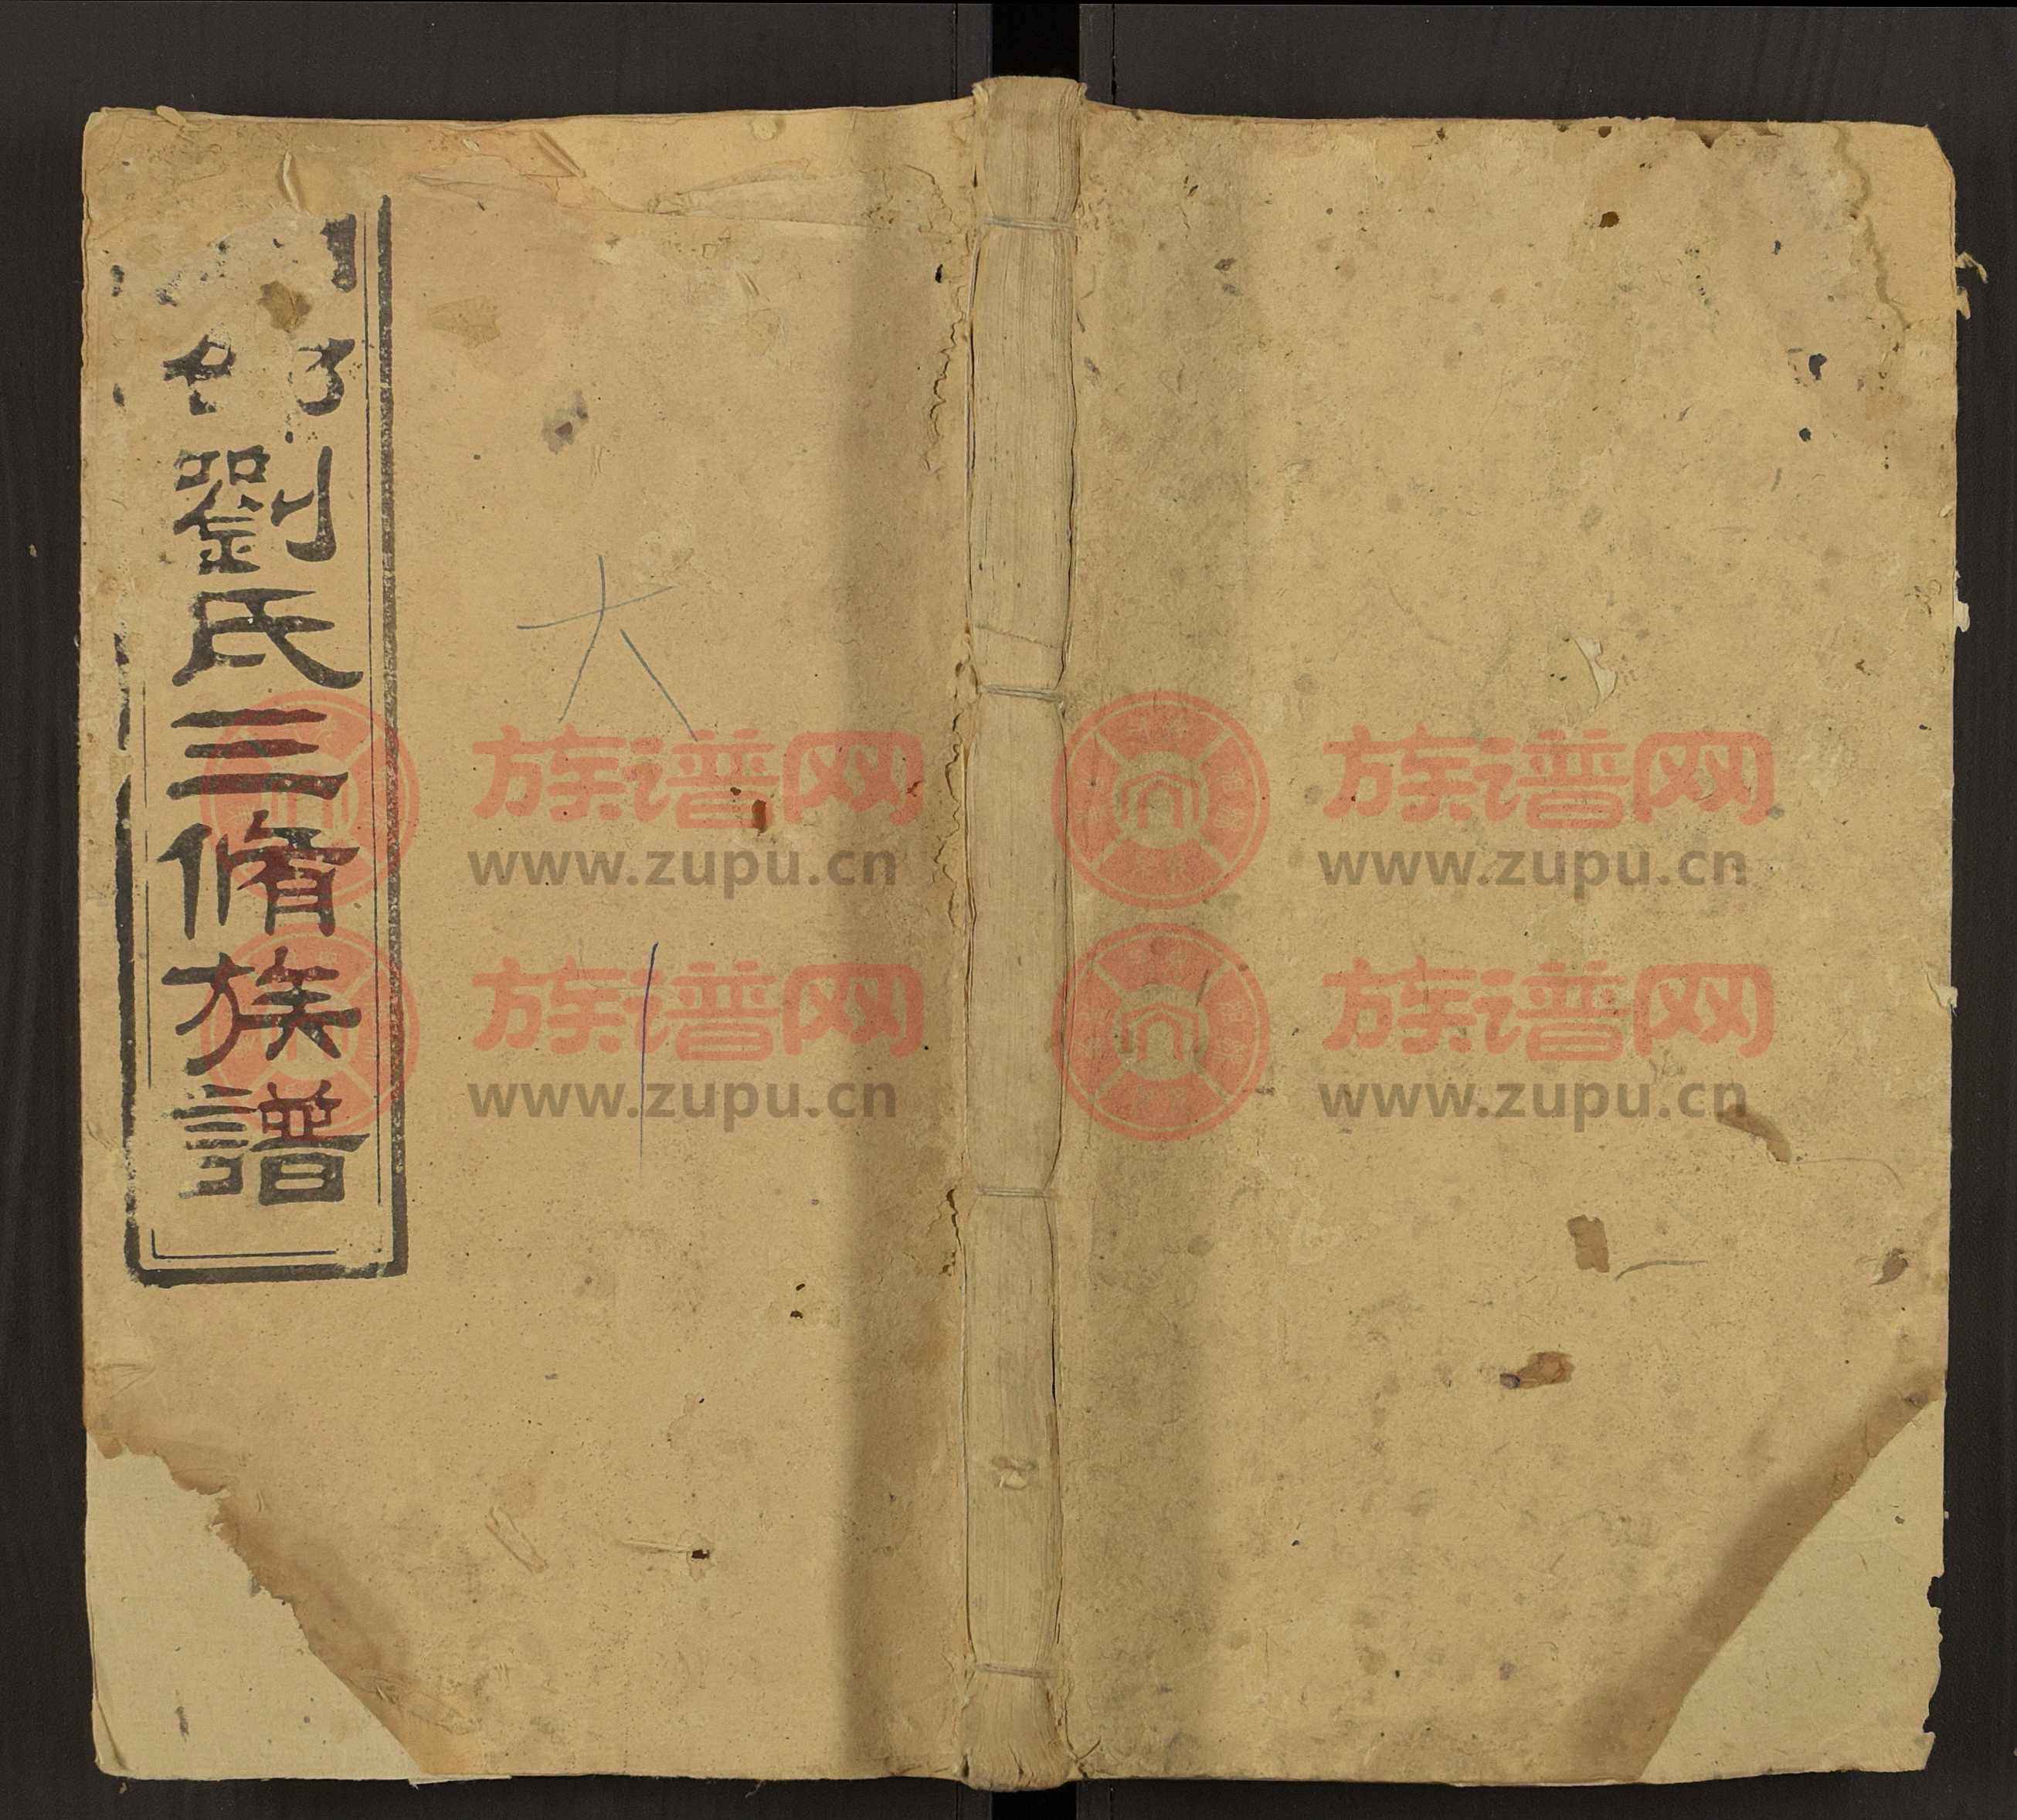 劉氏三脩族譜
大
族谱网
www.zupu.cn
族谱网
www.zupu.cn
族谱网
www.zupu.cn
族谱网
www.zupu.cn